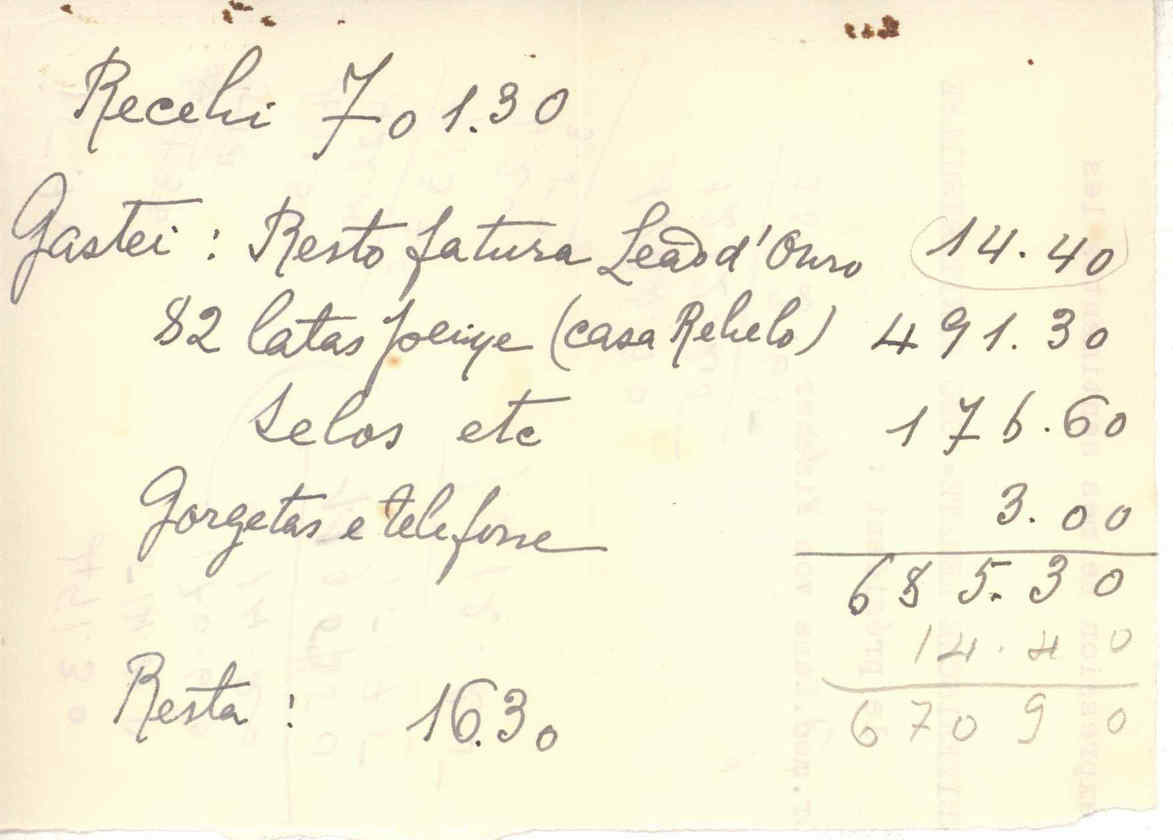 Recebi 701.30
Gastei : Resto fatura Leão d'Ouro 14.40
82 latas peixe (casa Rebelo) 491.30
Selos etc 176.60
Gorgetas e telefone 3.00
685.30
14.40
Resta : 16.30 670 90